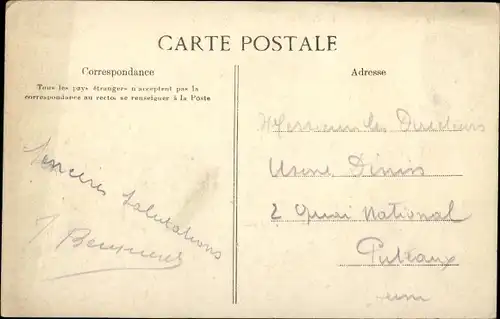 CARTE POSTALE
Correspondance
Tous les pays étrangers n'acceptent pas la
correspondance au recto: se renseigner à la Poste
Adresse
Sincères Salutations
Messieurs les Directeurs
Usine
2 Quai National
Puteaux
Seine